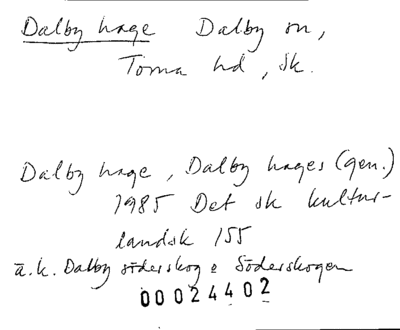 Dalby hage Dalby sn,
Torna hd, Sk.
Dalby hage, Dalby hages (gen.)
1985 Det sk kultur-
landsk 155
ä.k. Dalby söderskog o Söderskogen
00024402